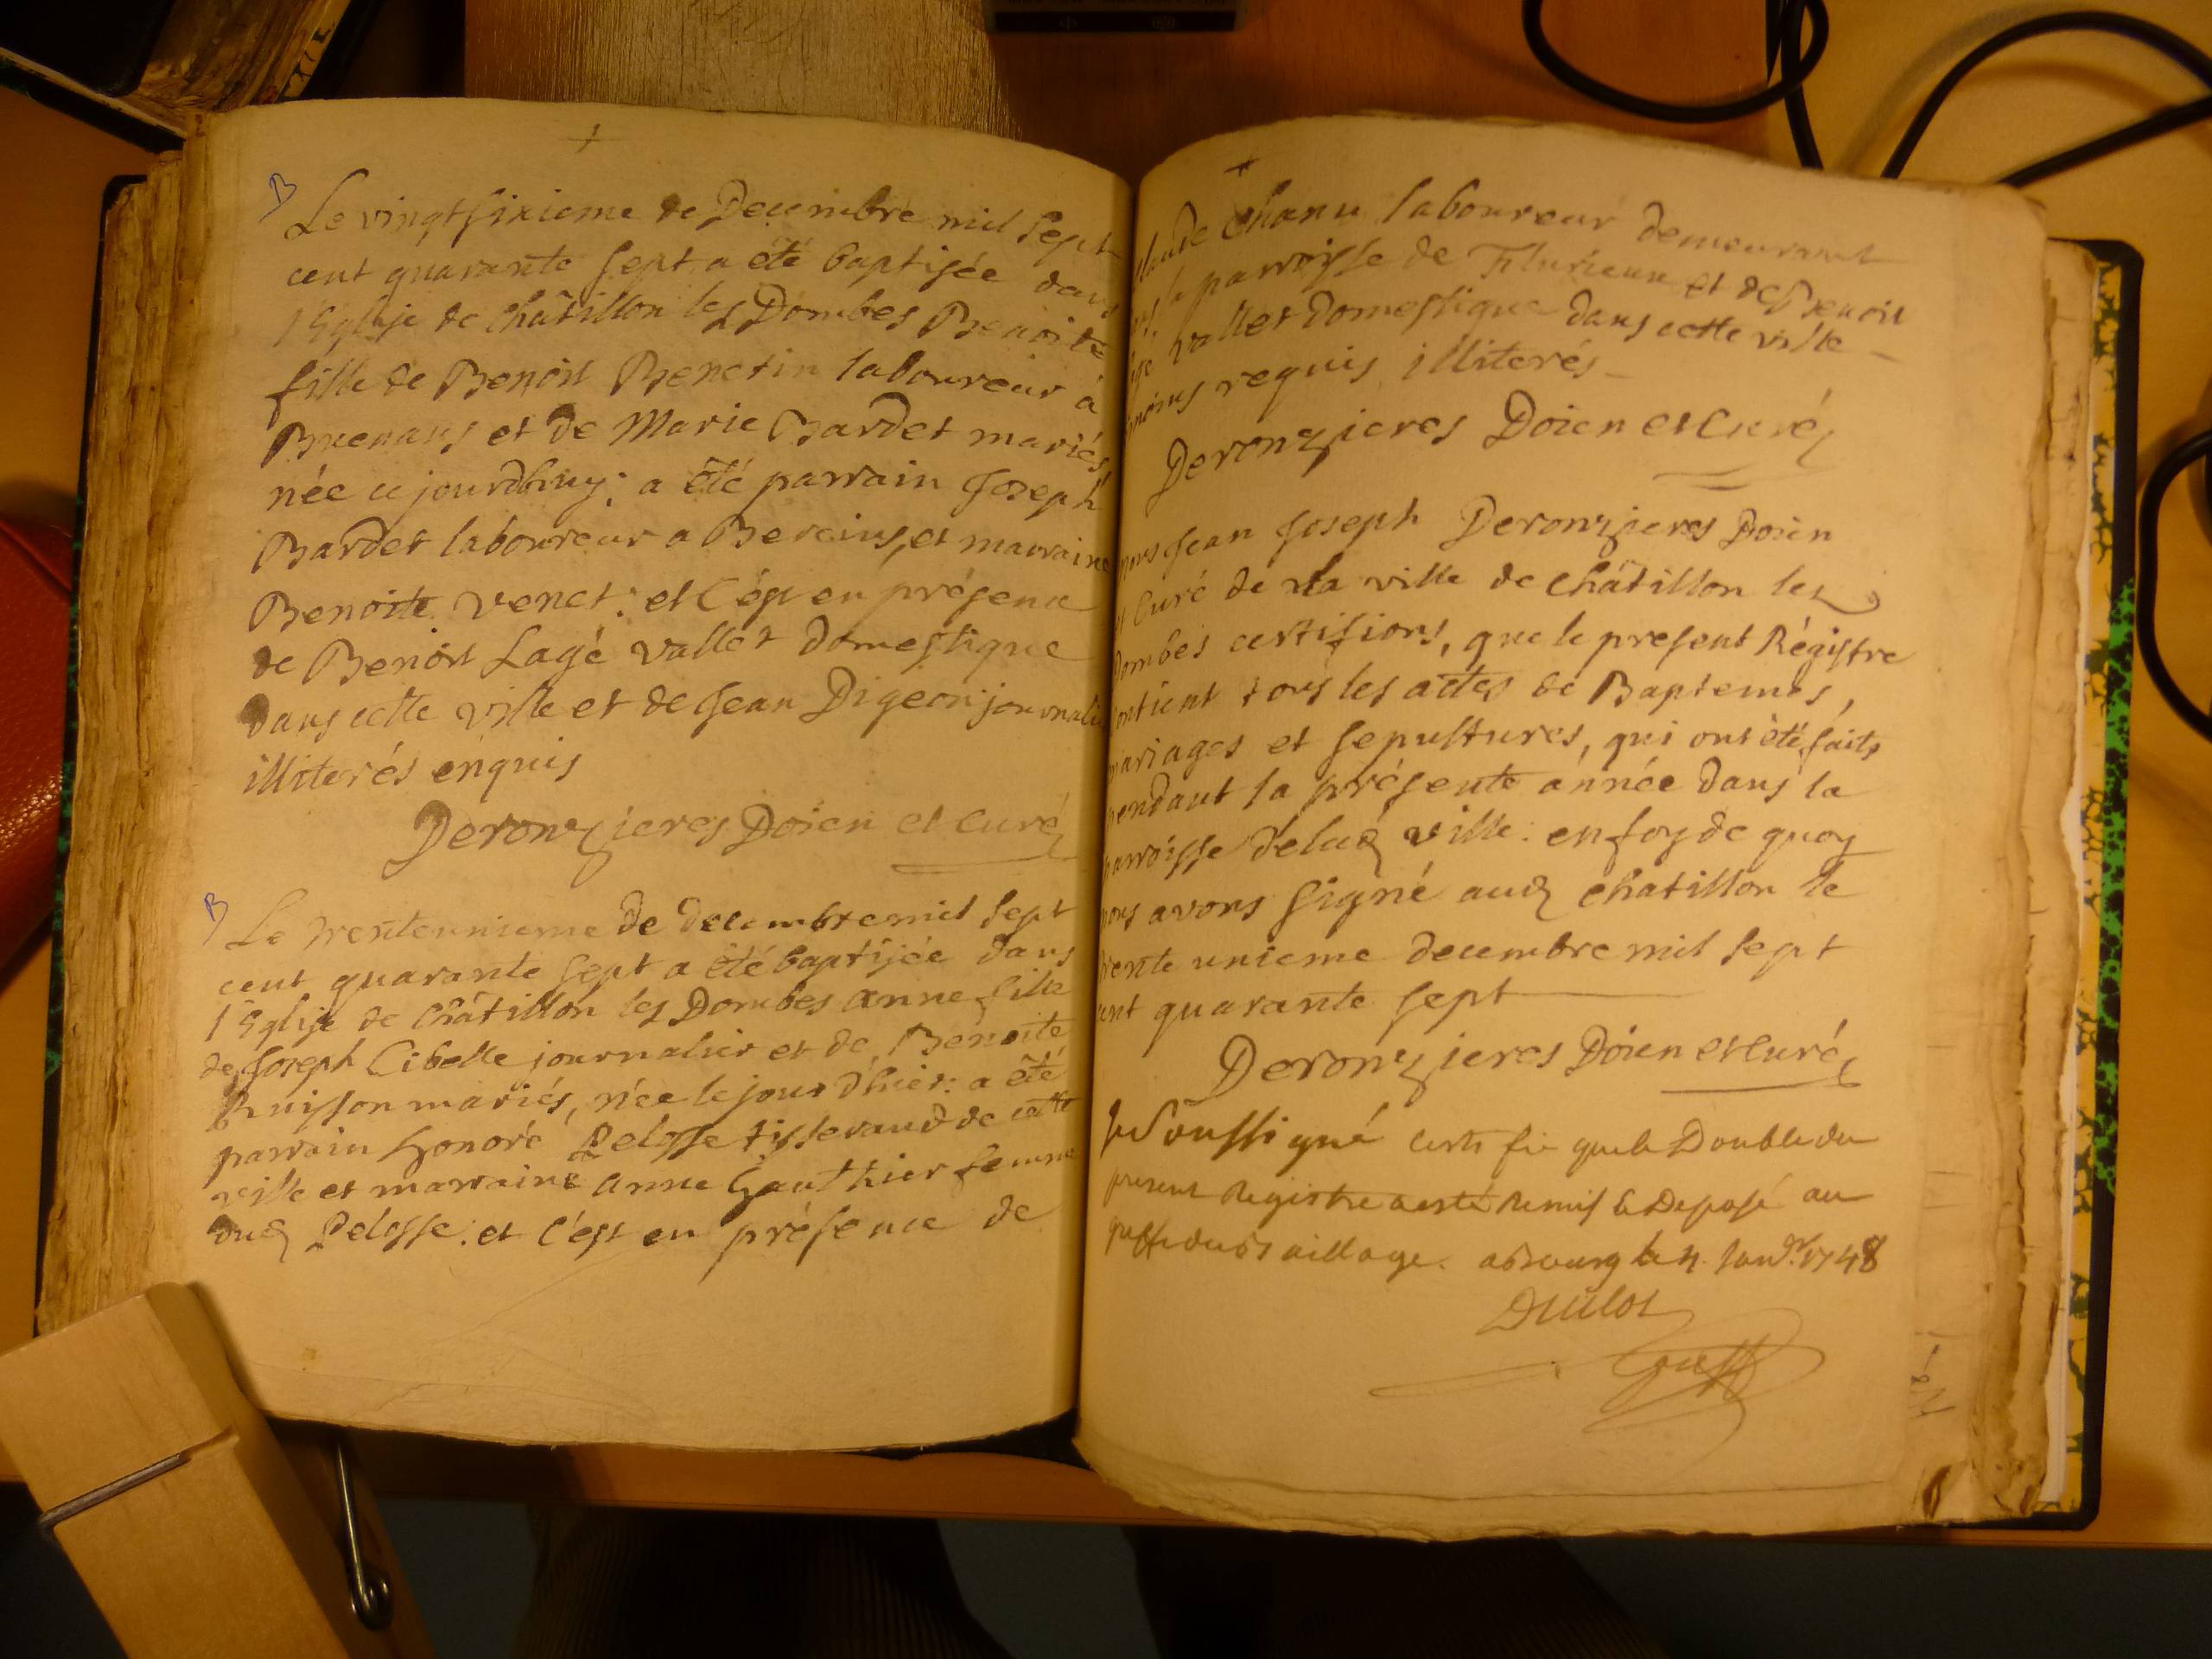 B
Le vingtsixieme de Decembre mil sept
cent quarante sept a été baptisée dans
l'Eglise de Châtillon les Dombes Benoite
fille de Benoit Benetin laboureur à
Buenans et de Marie Bardet mariés,
née ce jourdhuy; a été parrain Joseph
Bardet laboureur a Bereins, et marraine
Benoite Venet: et c'est en présence
de Benoit Lagé vallet domestique
dans cette ville et de Jean Digeon journali
illiterés enquis
Deronzieres Doien et curé
B
Le trenteunieme de decembre mil sept
cent quarante sept a été baptisée dans
l'Eglise de Châtillon les Dombes Anne fille
de Joseph Cibelle journalier et de Benoite
Buisson mariés, née le jour d'hier: a été
parrain Honoré Pelosse tisserand de cette
ville et marraine Anne Gauthier femme
dud Pelosse: et c'est en présence de
laude Chanu laboureur demeurant
la parroisse de Flurieux et de Benoit
agé vallet domestique dans cette ville
moins requis illiterés
Deronzieres Doien et Curé
nous Jean Joseph Deronzieres Doien
et Curé de la ville de Châtillon les
Dombes certifions, que le present Régistre
contient tous les actes de Baptemes,
mariages et sepultures, qui ont été faits
pendant la présente année dans la
parroisse de lad ville: en foy de quoy
nous avons signé aud chatillon le
trente unieme decembre mil sept
cent quarante sept
Deronzieres Doien et Curé
Je Soussigné certifie que le Double du
present Registre a esté Remis & Deposé au
greffe du Bailliage. a Bourg le 4 Janvr. 1748